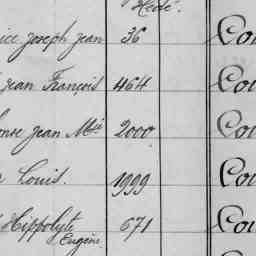 Hédé.
ice Joseph Jean 36 Cou
Jean François 464 Cou
onse Jean Mie 2000 Cou
Louis. 1999 Cou
Hippolyte 671 Cou
Eugène